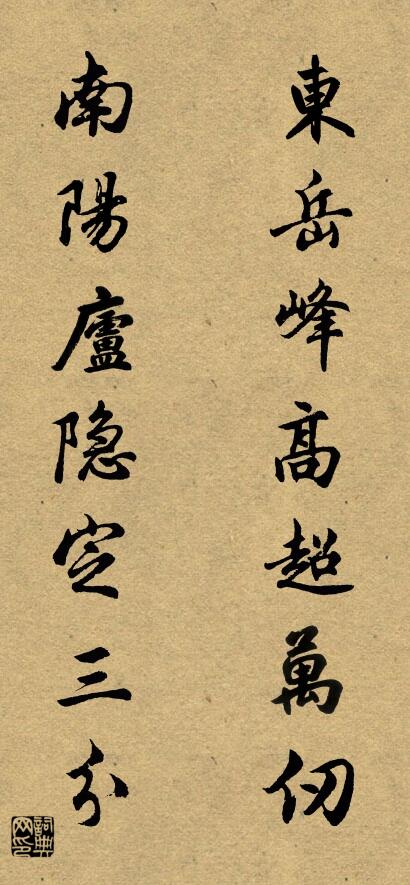 東岳峰高超萬仞
南陽廬隐定三分
詞典網印